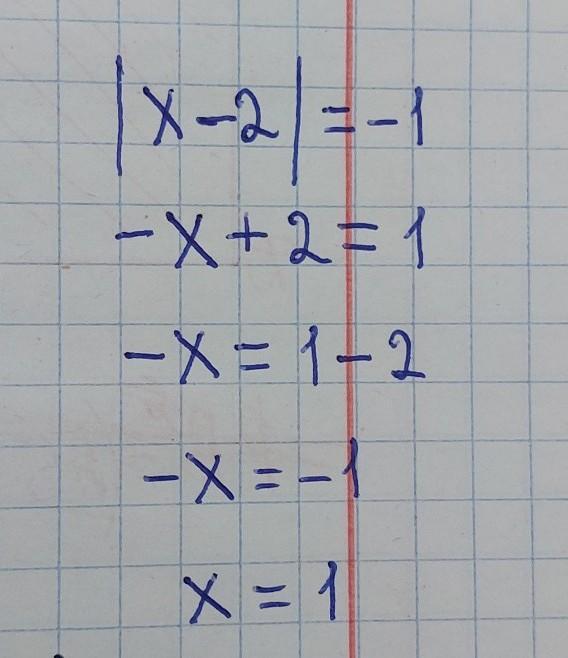 |x-2|=-1
-x+2=1
-x=1-2
-x=-1
x=1